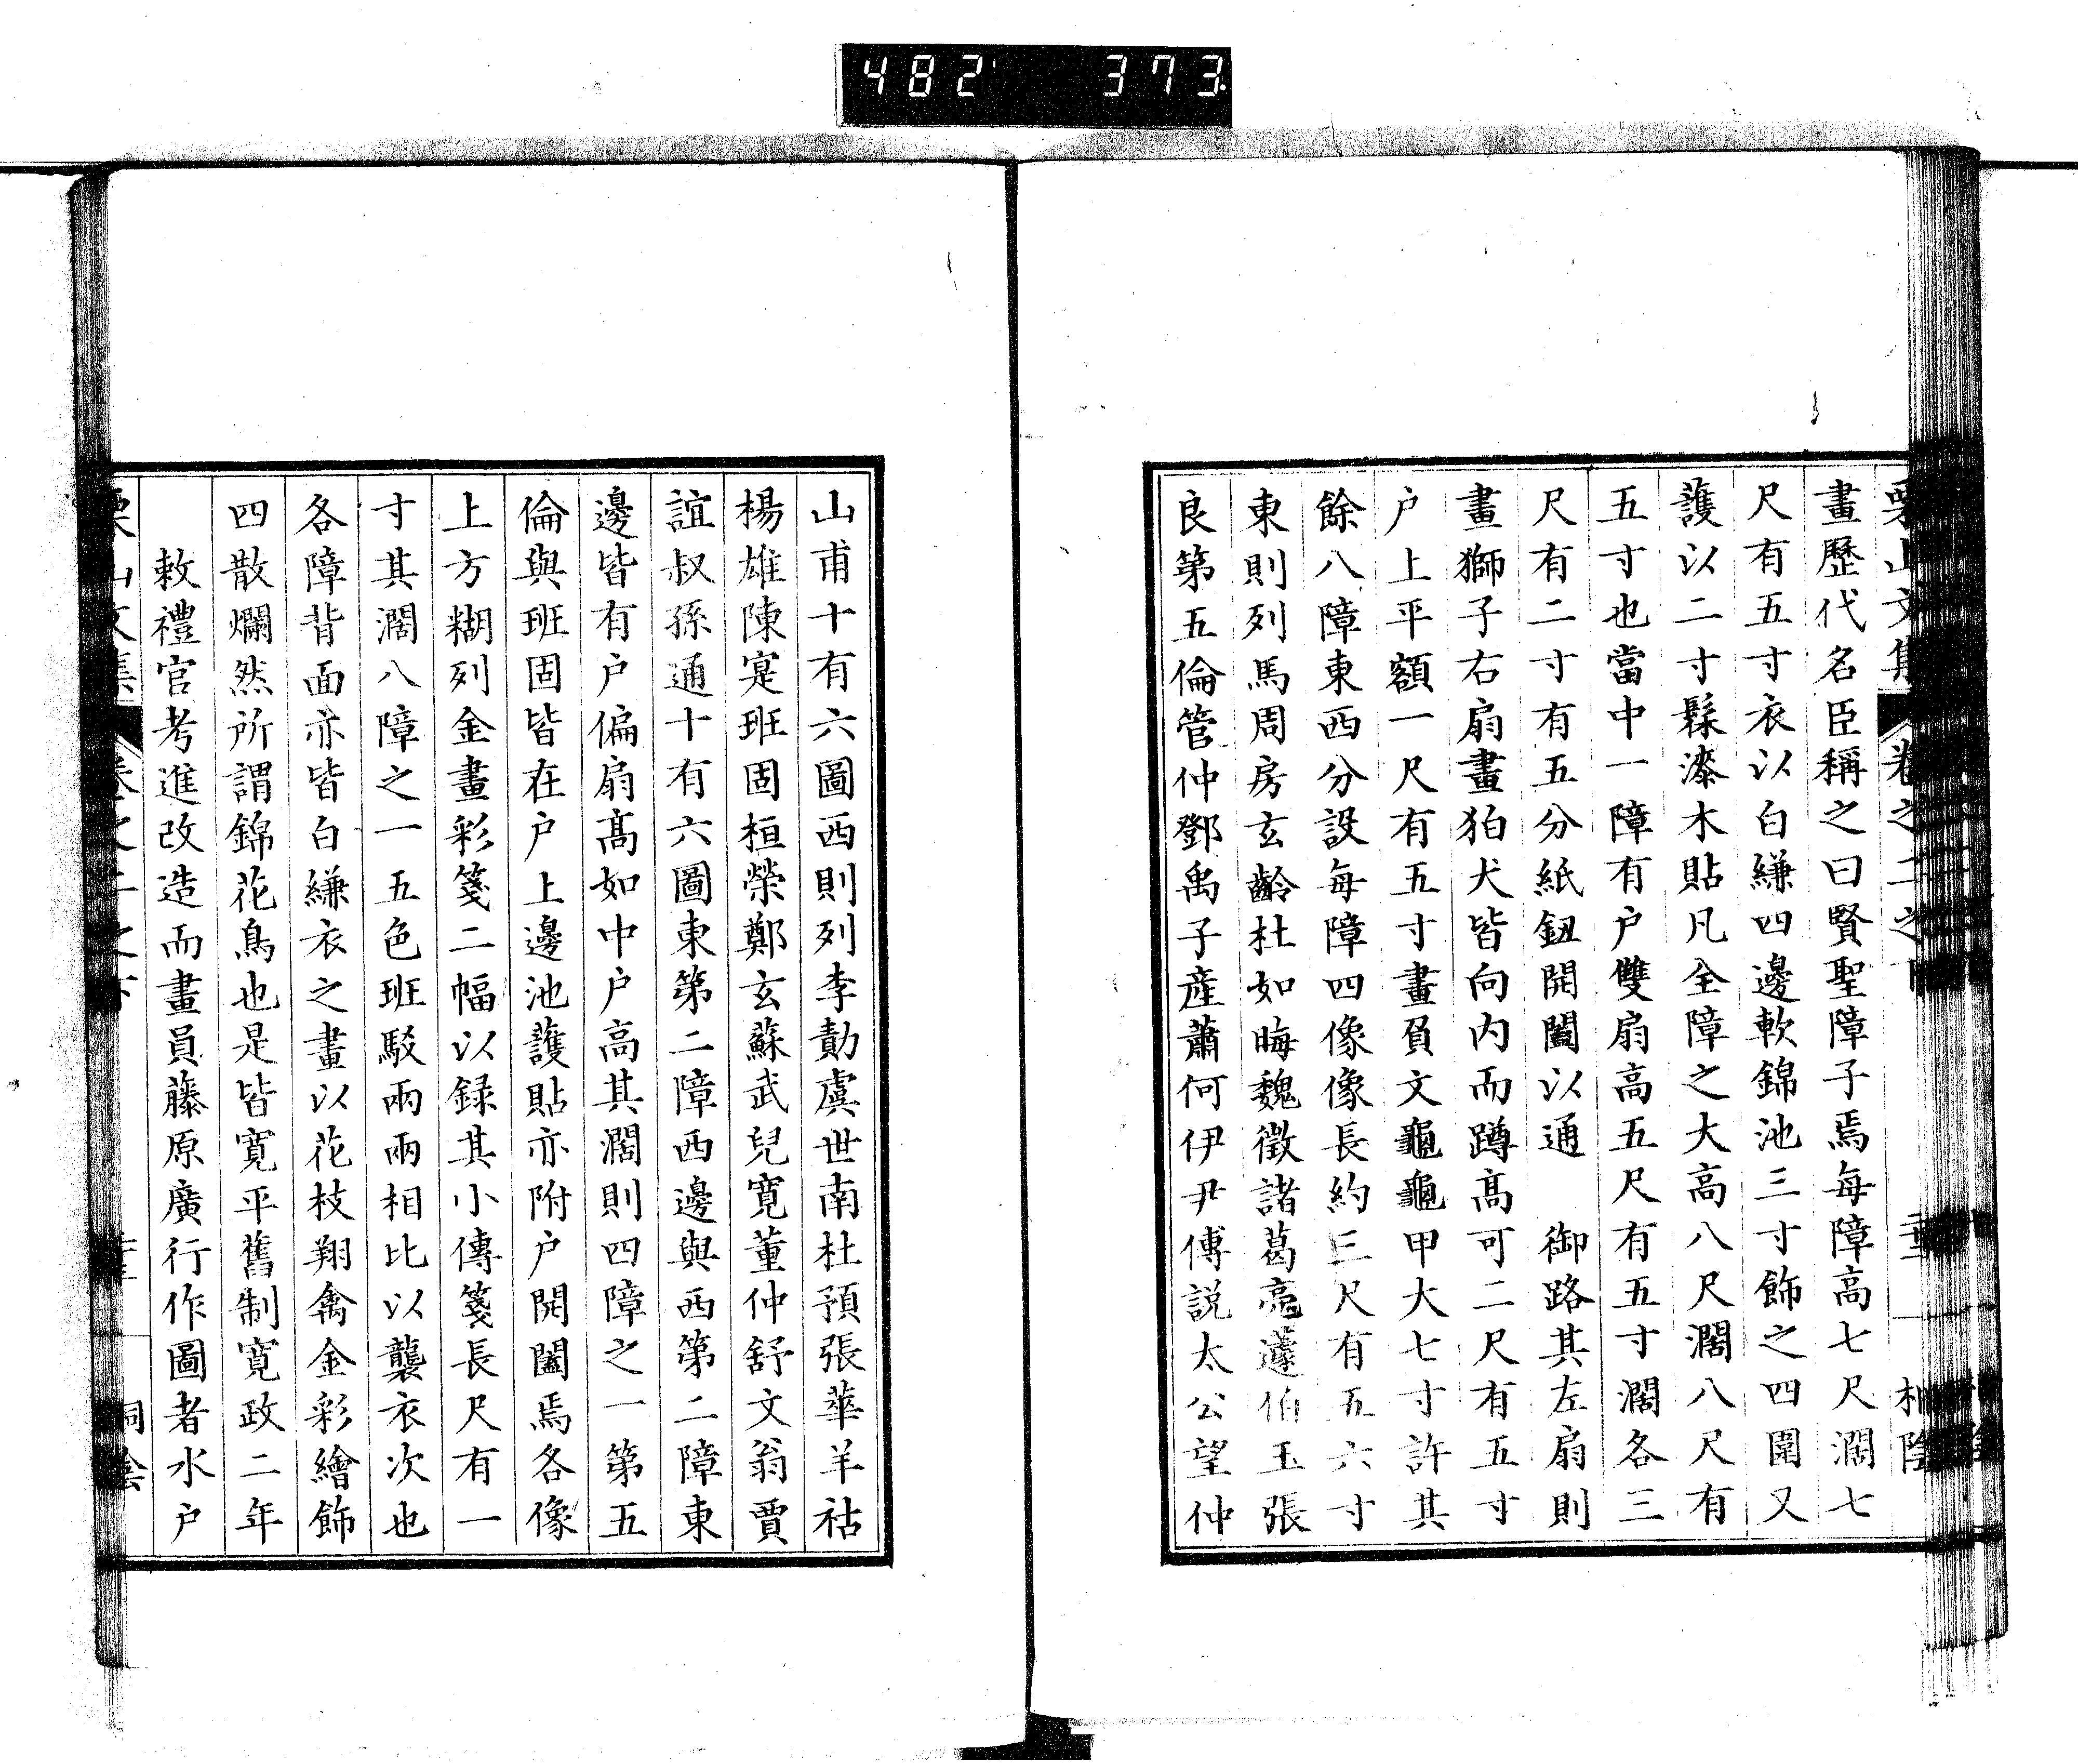 482 373
栗山文集 卷之二之下
畫歷代名臣稱之曰賢聖障子焉每障高七尺濶七
尺有五寸衣以白縑四邊軟錦池三寸飾之四圍又
護以二寸髹漆木貼凡全障之大高八尺濶八尺有
五寸也當中一障有户雙扇高五尺有五寸濶各三
尺有二寸有五分紙鈕開闔以通 御路其左扇則
畫獅子右扇畫狛犬皆向内而蹲髙可二尺有五寸
户上平額一尺有五寸畫負文龜龜甲大七寸許其
餘八障東西分設每障四像像長約三尺有五六寸
東則列馬周房玄齡杜如晦魏徵諸葛亮蘧伯玉張
良第五倫管仲鄧禹子産蕭何伊尹傅説太公望仲
山甫十有六圖西則列李勣虞世南杜預張華羊祜
楊雄陳寔班固桓榮鄭玄蘇武兒寛董仲舒文翁賈
誼叔孫通十有六圖東第二障西邊與西第二障東
邊皆有户偏扇髙如中户高其濶則四障之一第五
倫與班固皆在户上邊池護貼亦附户開闔焉各像
上方糊列金畫彩箋二幅以録其小傳箋長尺有一
寸其濶八障之一五色班駁兩兩相比以襲衣次也
各障背面亦皆白縑衣之畫以花枝翔禽金彩繪飾
四散爛然所謂錦花鳥也是皆寛平舊制寛政二年
敕禮官考進改造而畫員藤原廣行作圖者水户
栗山文集 卷之二之下